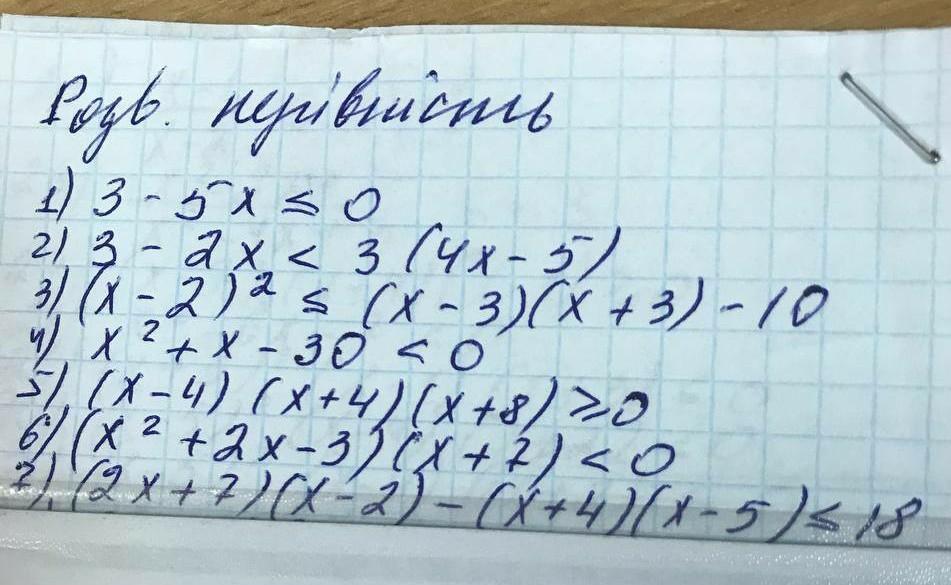 Розв. нерівність
1) 3 - 5x ≤ 0
2) 3 - 2x < 3 (4x - 5)
3) (x - 2)² ≤ (x - 3)(x + 3) - 10
4) x² + x - 30 < 0
5) (x - 4) (x + 4)(x + 8) ≥ 0
6) (x² + 2x - 3)(x + 7) < 0
7) (2x + 7)(x - 2) - (x + 4)(x - 5) ≤ 18